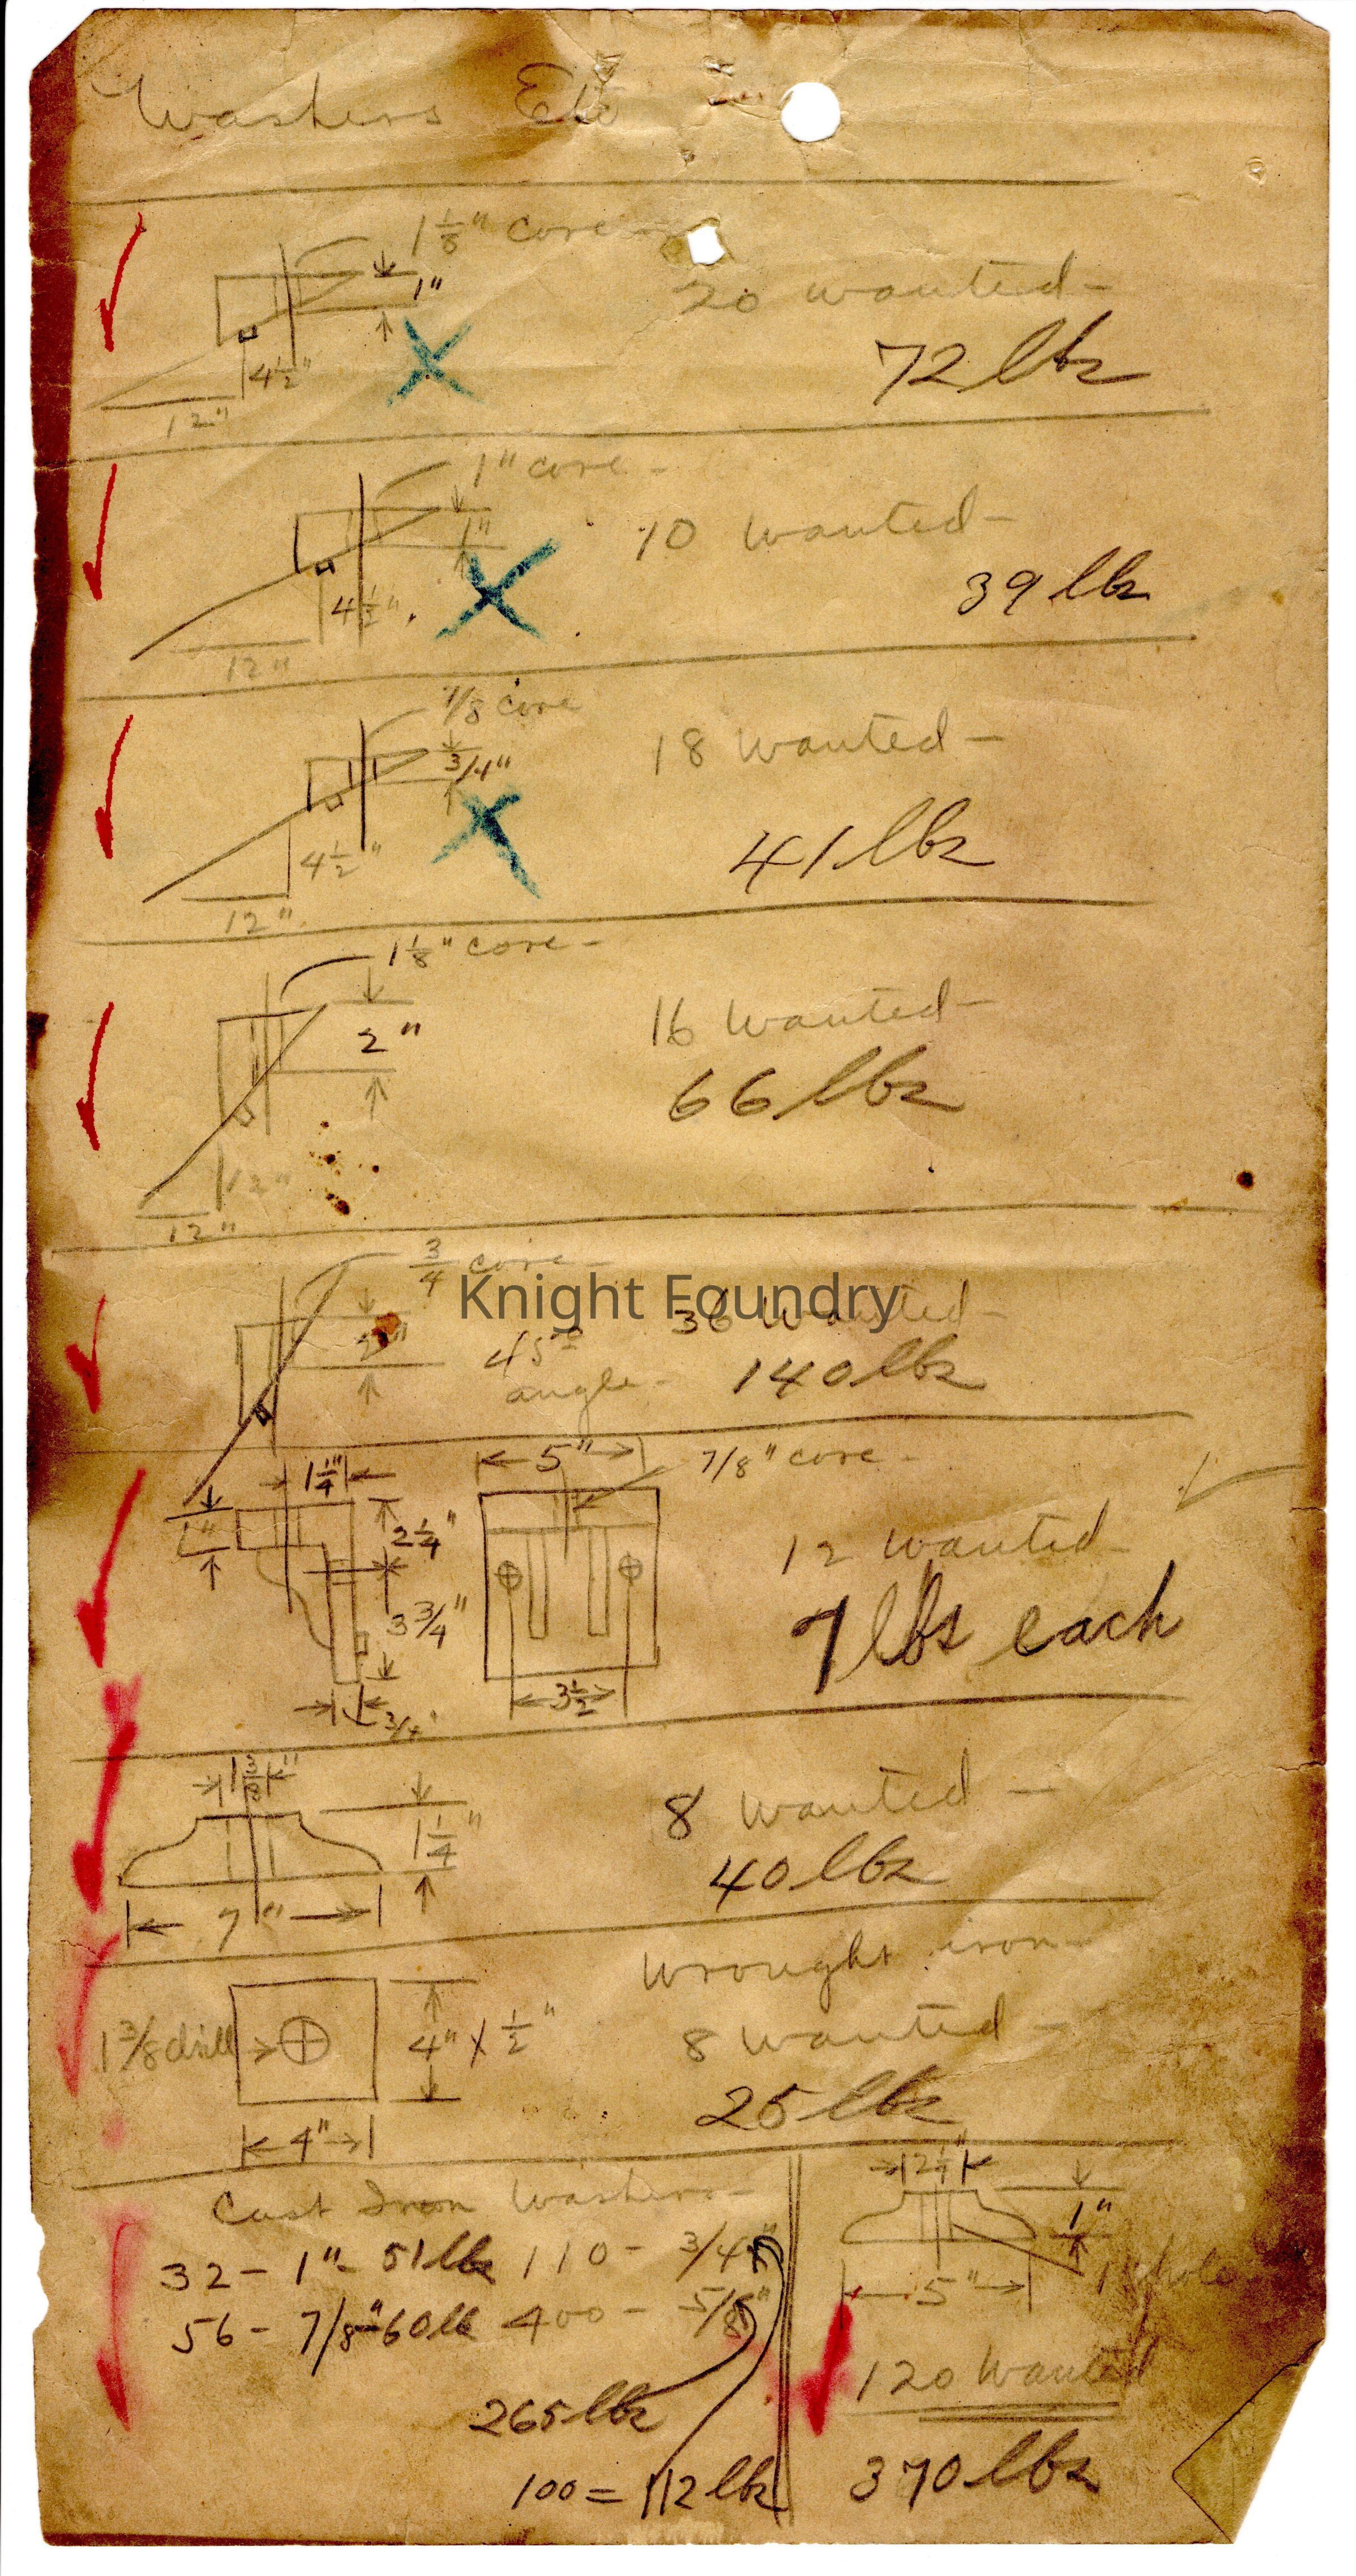 Washers Etc
1 1/8" core
1"
20 wanted-
72 lbs
4 1/2"
12"
1" core-
1"
10 wanted-
39 lbs
4 1/2"
12"
7/8 core
3/4"
18 wanted-
41 lbs
4 1/2"
12"
1 1/8" core-
2"
16 wanted-
66 lbs
12"
12"
3/4 core-
Knight Foundry
36 wanted-
2"
45°
angle-
140 lbs
1 1/4"
5"
7/8" core-
1"
2 1/4"
12 wanted-
3 3/4"
7 lbs each
3 1/2
3/4"
1 3/8"
8 wanted-
1 1/4"
40 lbs
7"
Wrought iron-
1 3/8 drill
4" x 1/2"
8 wanted-
25 lbs
4"
Cast Iron Washers-
32- 1"- 51 lbs 110- 3/4"
56- 7/8"-60 lb 400- 5/8"
265 lbs
100 = 112 lbs
1"
1" hole
5"
120 Wanted
370 lbs